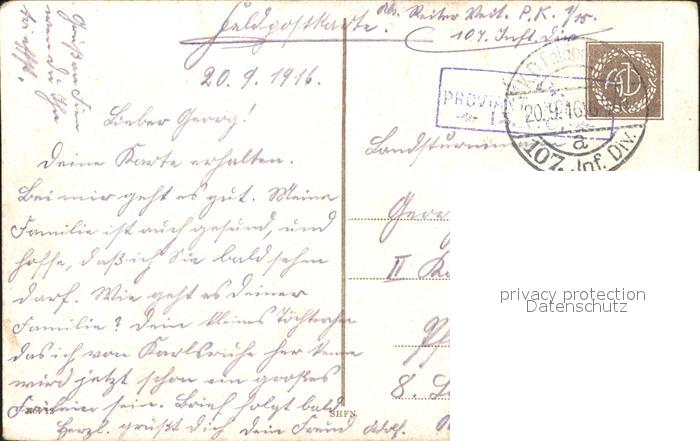 Feldpostkarte.
Abs. Reiter Vert. P.K. 1/15.
107. Inft. Div.
20.9.1916.
PROVIAN
20.9.16
a
107. Inf. Div.
Lieber Georg!
Deine Karte erhalten.
Bei mir geht es gut. Meine
Familie ist auch gesund, und
hoffe, daß ich Sie bald sehen
darf. Wie geht es Deiner
Familie? Dein kleines Töchterchen
das ich von Karlsruhe her kenne
wird jetzt schon ein großes
sein. Brief folgt bald
Herzl. grüßt dich Dein Freund Adolf.
Landsturm
Geor
II
8.
SHFN
privacy protection
Datenschutz